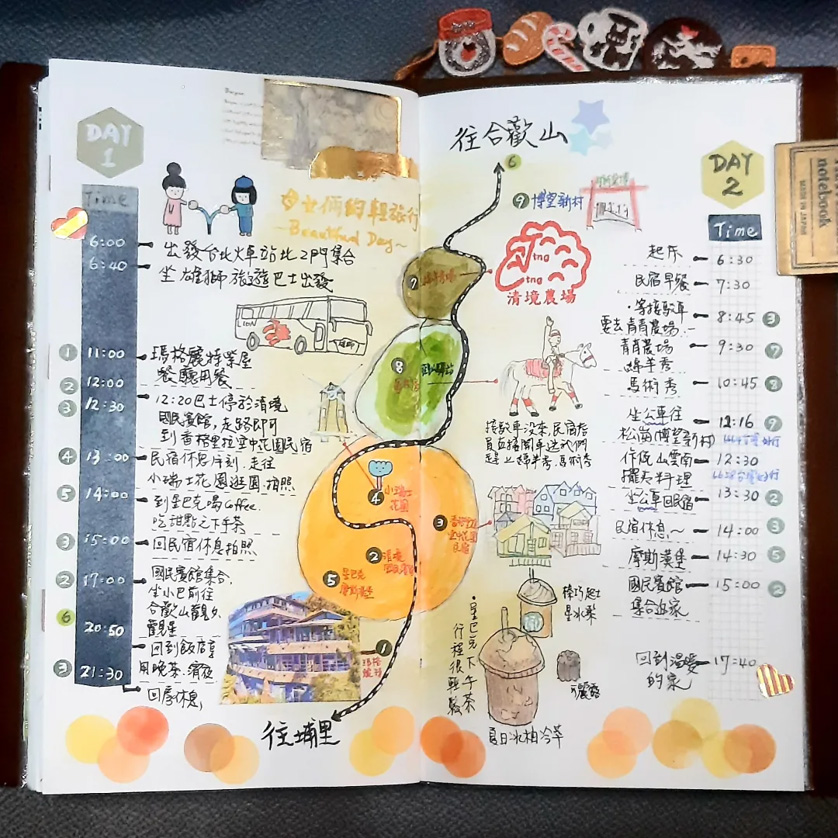 DAY
1
Time
女倆的輕旅行
~Beautiful Day~
6:00
出發台北火車站北2門集合
6:40
坐雄獅旅遊巴士出發
Lion
① 11:00
瑪格麗特茶屋
餐廳用餐
② 12:00
③ 12:30
12:20巴士停於清境
國民賓館,走路即可
到香格里拉空中花園民宿
④ 13:00
民宿休息片刻,走往
小瑞士花園逛園拍照
⑤ 14:00
到星巴克喝Coffee.
吃甜點之下午茶
③ 15:00
回民宿休息拍照
② 17:00
國民賓館集合.
坐小巴前往
合歡山觀夕.
觀星
6
20:50
回到飯店享
用晚茶.宵夜
③ 21:30
回房休息,
往埔里
往合歡山
6
⑨ 博望新村
7
8
Qing
tng
清境農場
4
小瑞士
花園
3
香格里拉
空中花園
民宿
2
5
1
接駁車沒來,民宿
DAY
2
Time
起床
6:30
民宿早餐
7:30
·等接駁車
要去青青農場
8:45 ③
青青農場
綿羊秀
9:30 ⑦
馬術秀
10:45 ⑧
坐公車往
松崗(博望新村)
12:16 ⑨
作伙山雲南
擺夷料理
12:30
坐公車回民宿
13:30 ②
民宿休息~
14:00 ③
摩斯漢堡
14:30 ⑤
國民賓館
集合返家
15:00 ②
回到溫暖
的家
17:40
·星巴克下午茶
行程很輕鬆
可麗露
夏日冰柚冷萃
notebook
MADE IN JAPAN